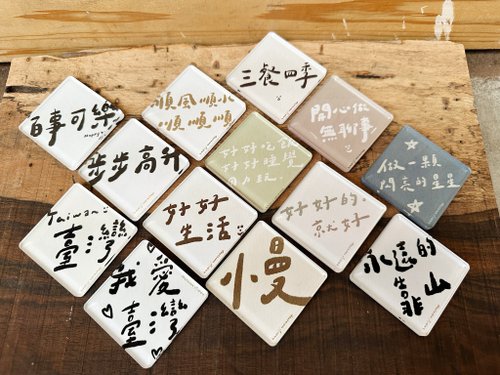 三餐四季
順風順水
順順順
開心做
無聊事
百事可樂
Happy
好好吃飯
好好睡覺
用力玩
做一顆
閃亮的星星
步步高升
好好
生活
好好的.
就好
Taiwan
臺灣
慢
永遠的
靠山
我愛
臺灣